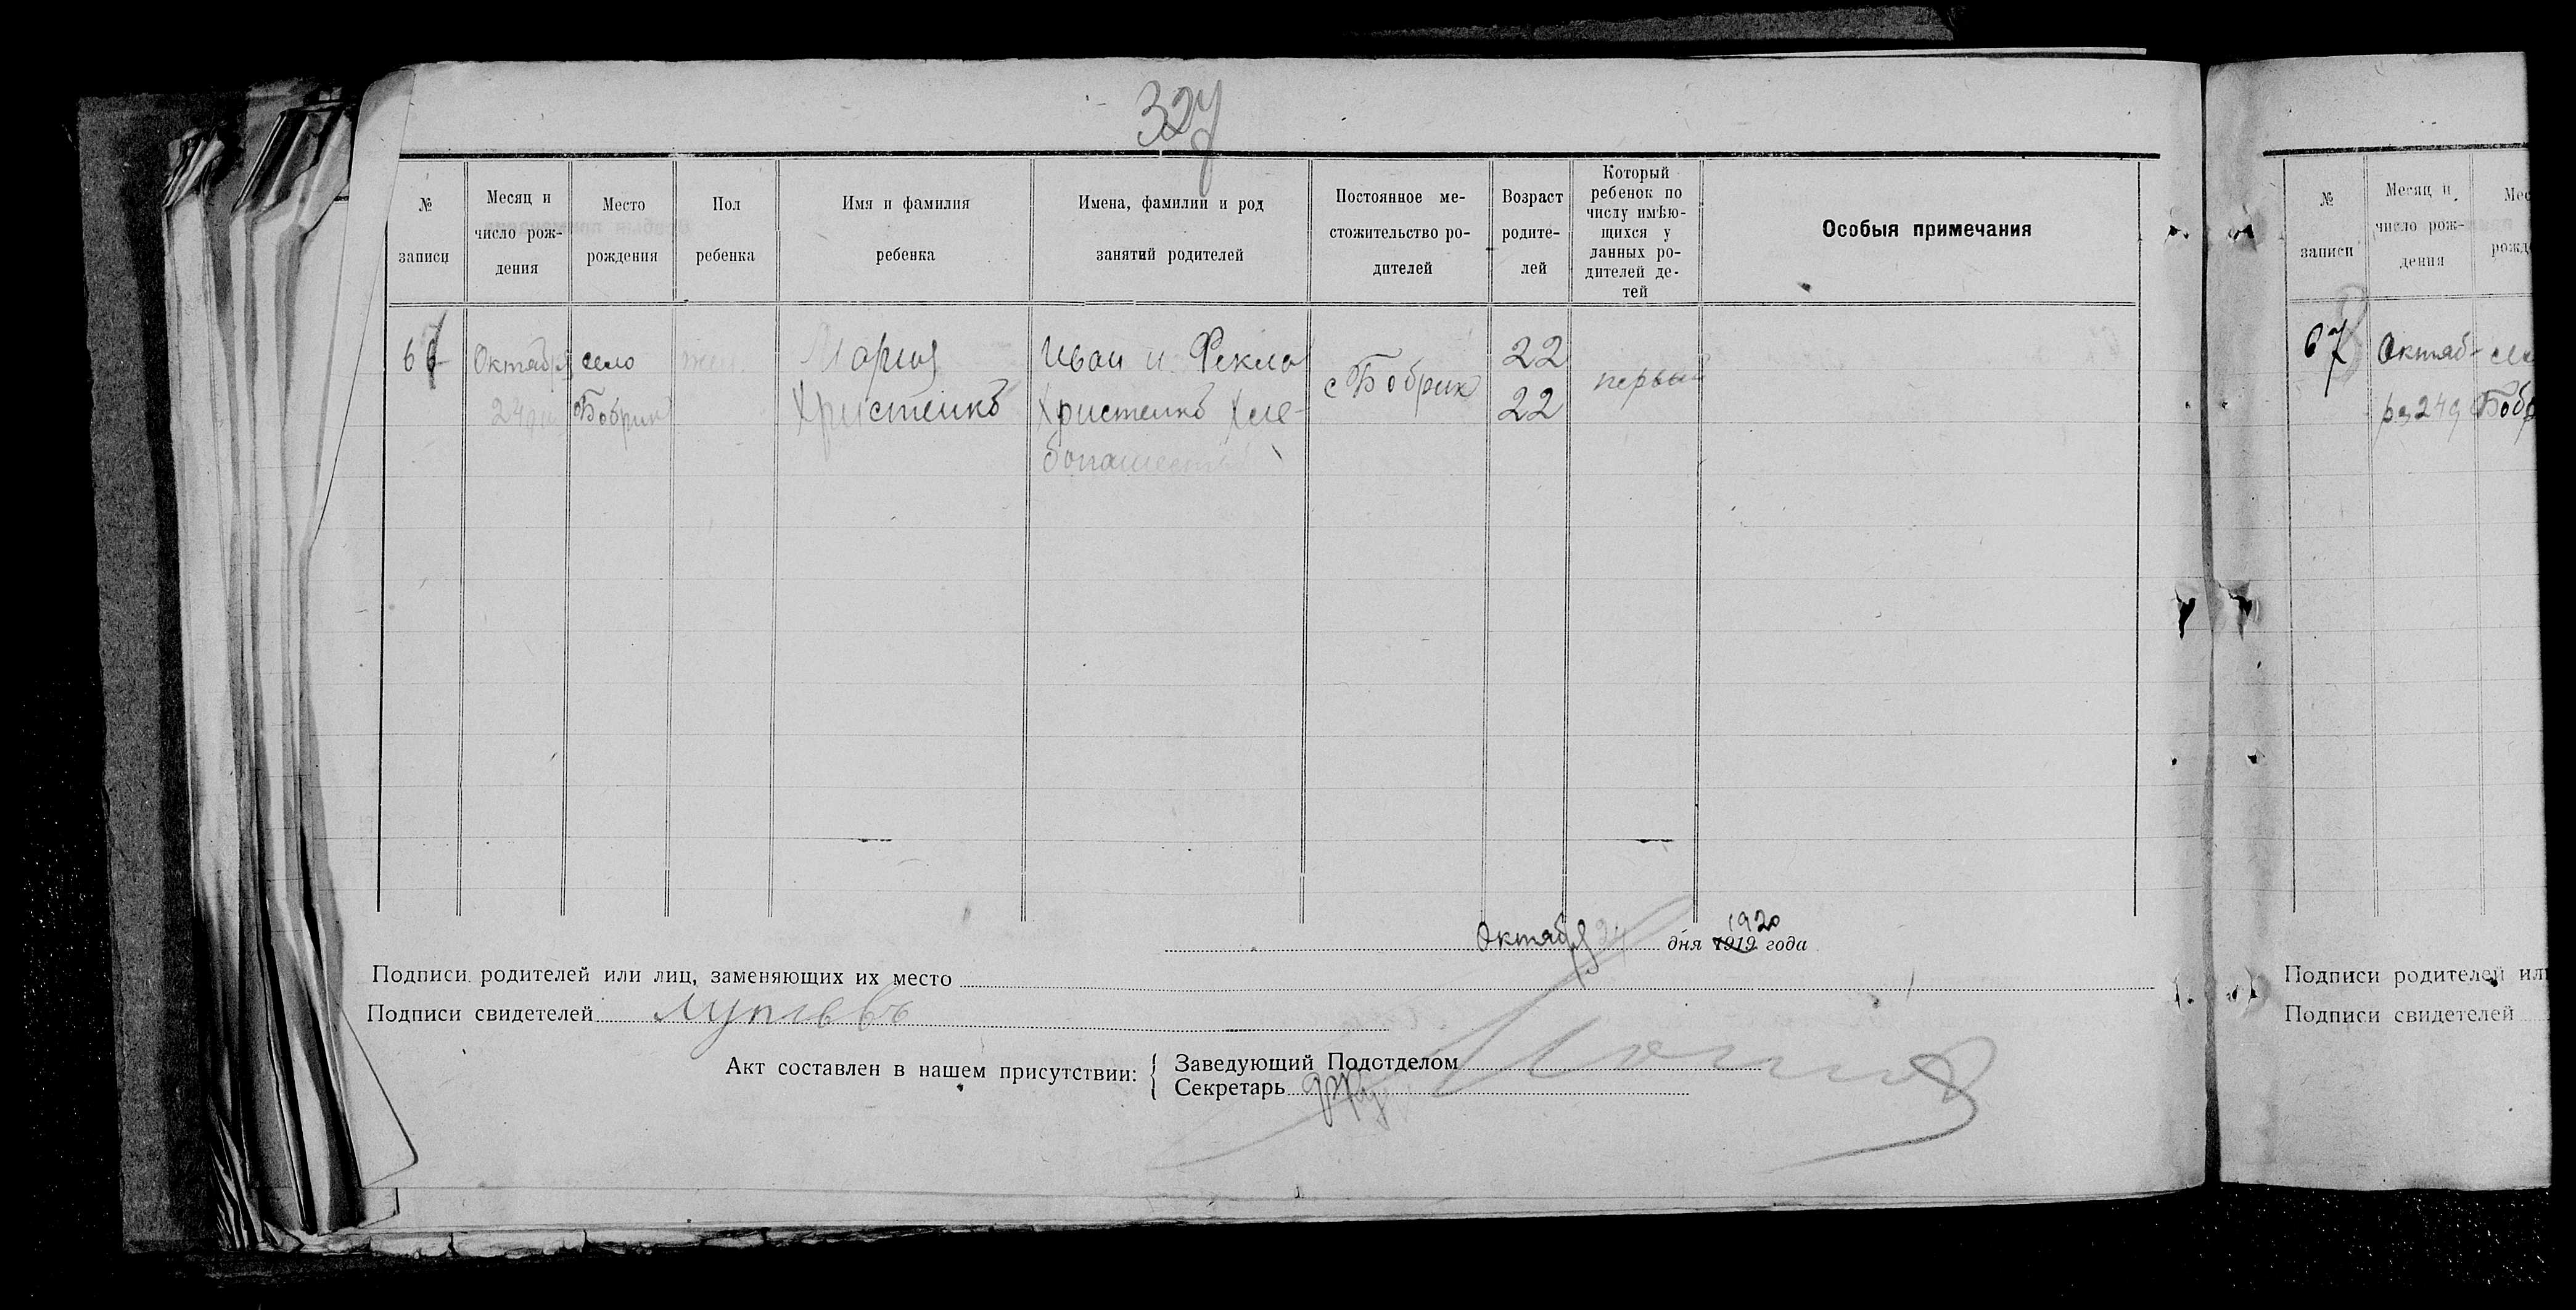 327
№ записи
Месяц и число рож-дения
Место рождения
Пол ребенка
Имя и фамилия ребенка
Имена, фамилии и род занятий родителей
Постоянное ме-стожительство ро-дителей
Возраст родите-лей
Который ребенок по числу имѣю-щихся у данных ро-дителей де-тей
Особыя примечания
Октября село жен. Мария Иван и Фекла 22
24 Бобрик Христенко Христенко Хле- с Бобрик 22 первый
бопашество
Октября 24 дня 1919 1920 года
Подписи родителей или лиц, заменяющих их место
Подписи свидетелей
Акт составлен в нашем присутствии: { Заведующий Подотделом
Секретарь
№ записи
Месяц и число рож-дения
Мес
рожде
67 Октяб- село
ря 24 д Бобр
Подписи родителей или
Подписи свидетелей